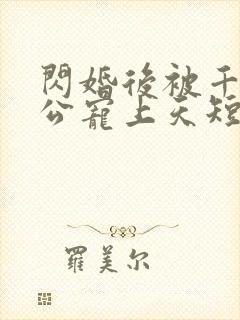 閃婚後被千
公寵上天短
羅美尔